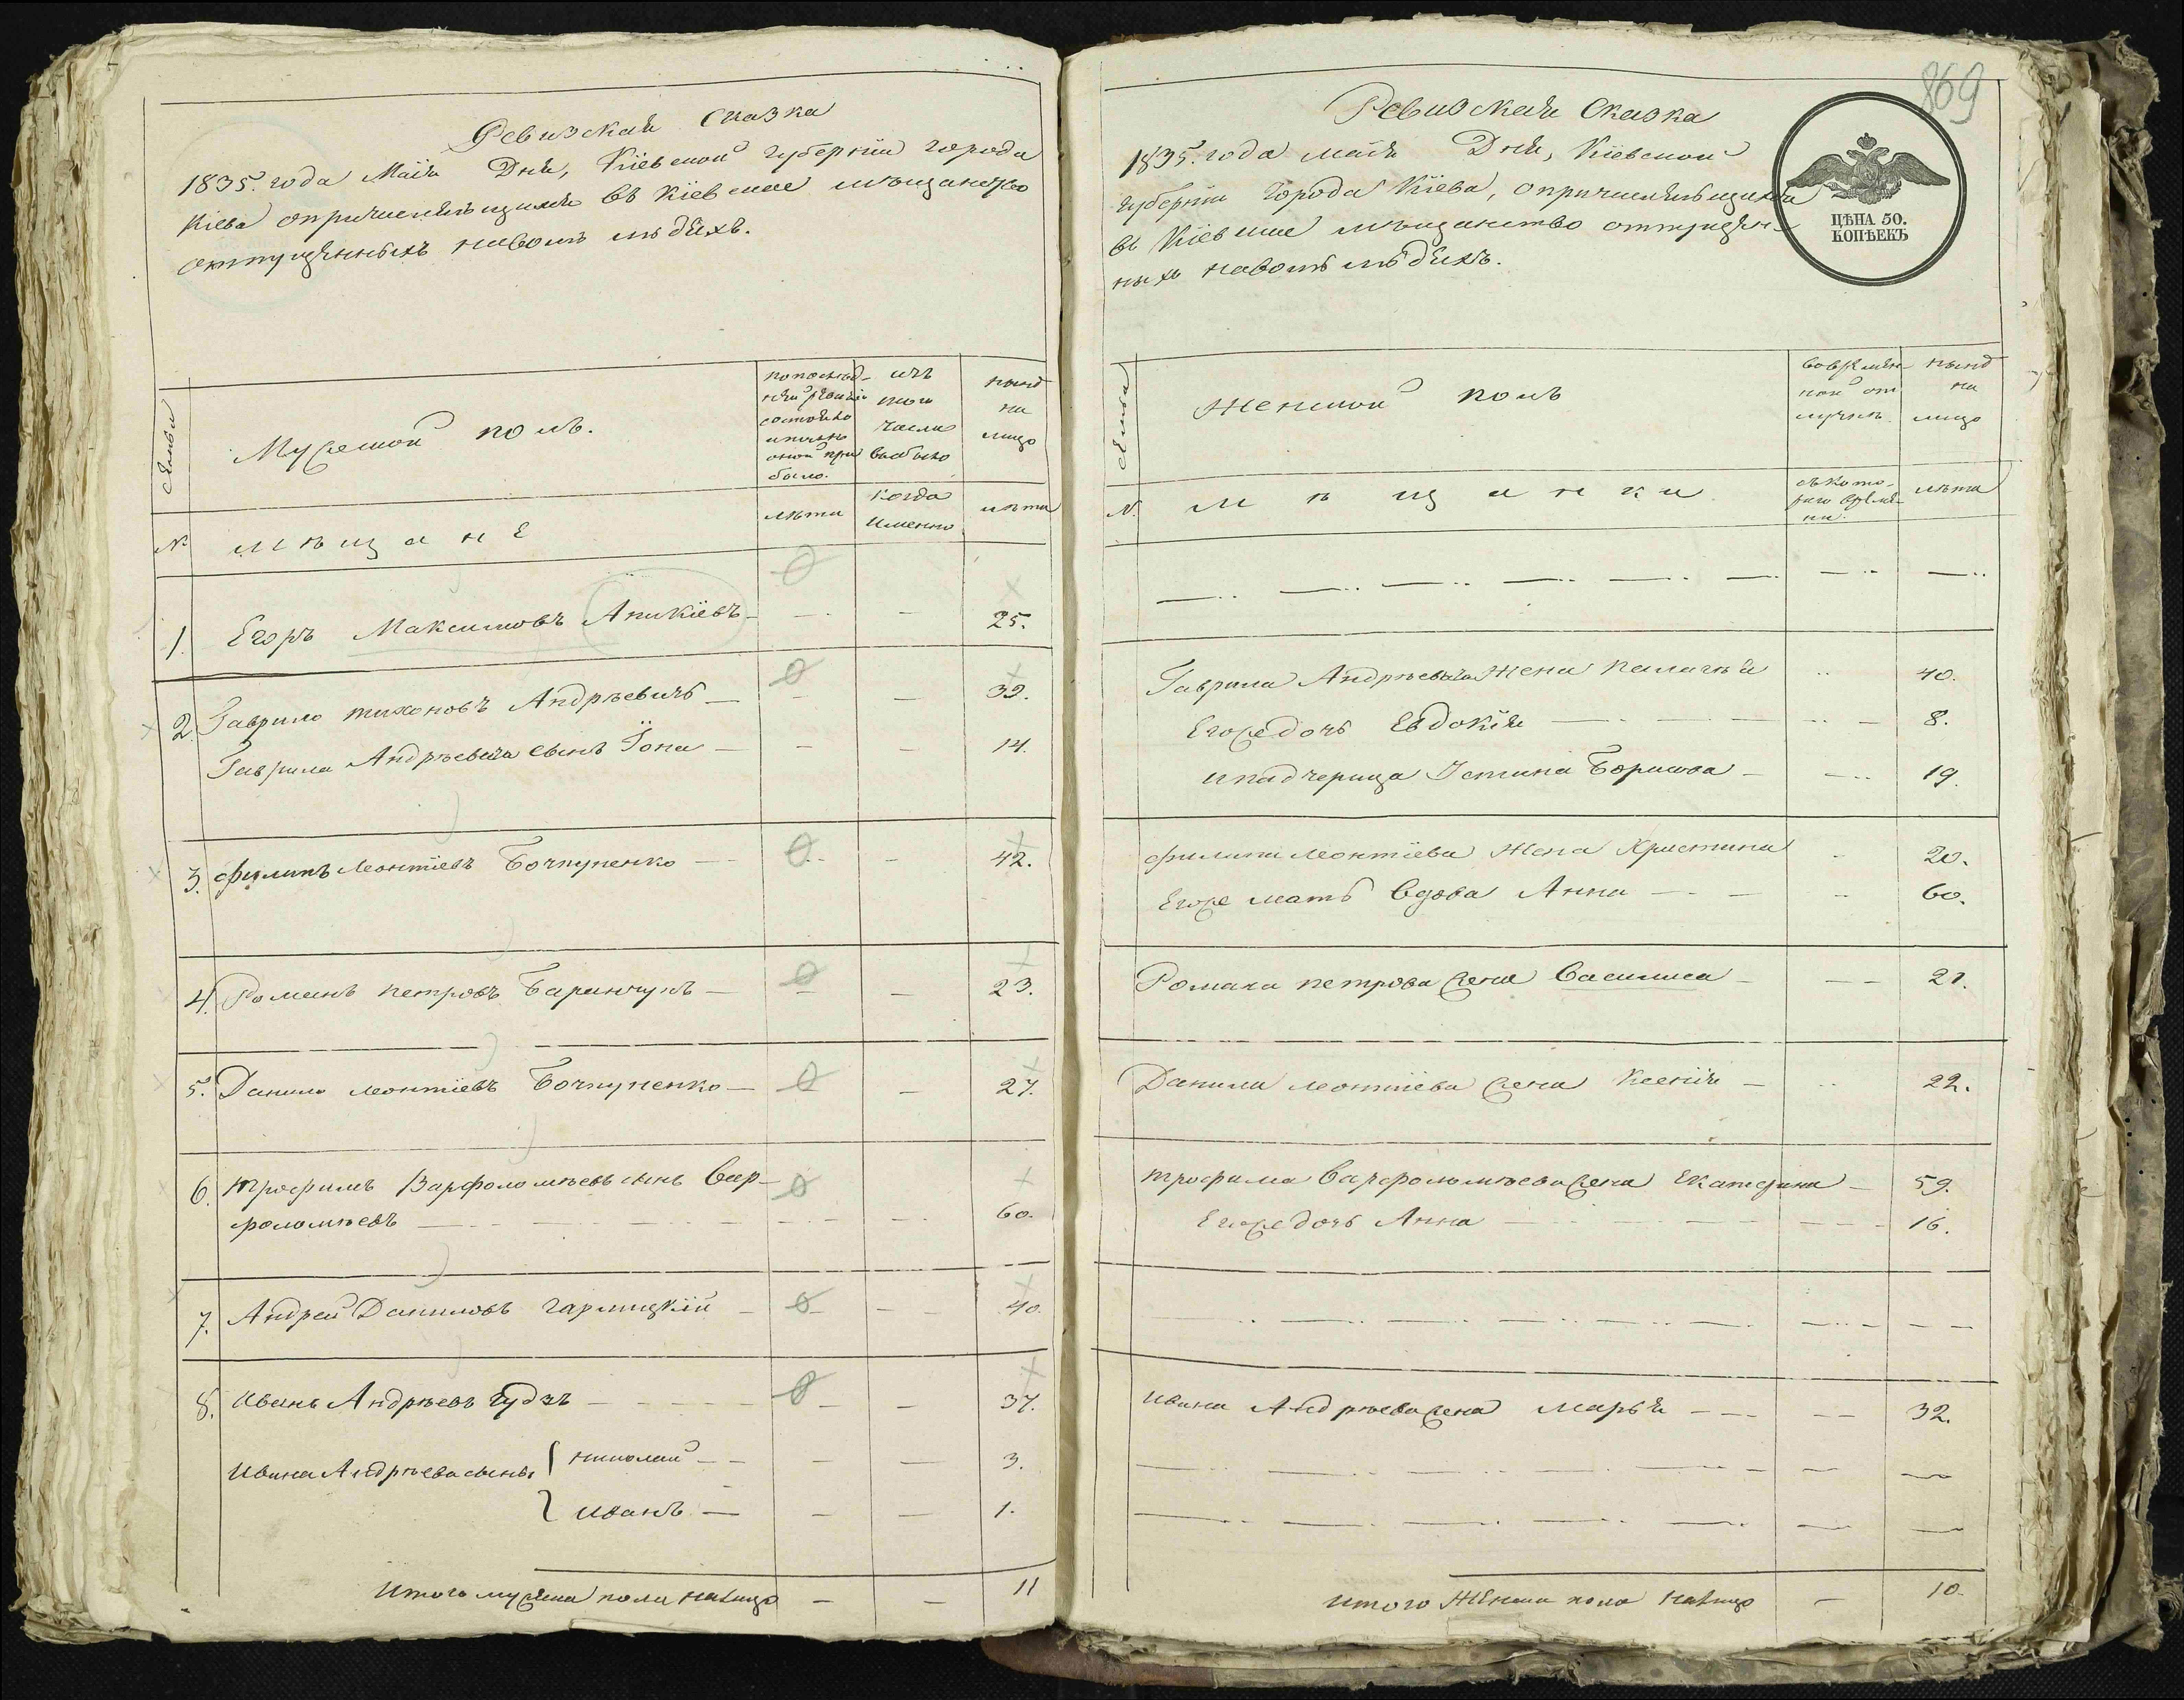 Ревизская Сказка
1835. года Маія Дня, Кіевской губерніи города
Кіева опричисляющимся въ Кіевское мѣщанство
отпущенныхъ наволю людяхъ.
Семьи
Мужеской полъ.
попослѣд-
ней ревизіи
состояло
и послѣ
оной при
было.
изъ
того
числа
выбыло
нынѣ
на
лицо
№
мѣщане
лѣта
когда
именно
лѣта
1. Егоръ Максимовъ Аникіевъ 25.
2. Гаврило тихоновъ Андрѣевичъ 39.
Гаврила Андрѣевича сынъ Іона 14.
3. Филипъ Леонтіевъ Бочпуненко 42.
4. Романъ петровъ Баранчукъ 23.
5. Данило леонтіевъ Бочпуненко 27.
6. трофимъ Варфоломѣевъ сынъ Вар-
фоломѣевъ 60.
7. Андрей Даниловъ гарлицкій 40.
8. Иванъ Андрѣевъ Гудзь 37.
Ивана Андрѣева сыны николай 3.
Иванъ 1.
Итого мужеска пола налицо 11
869
Ревизская Сказка
1835. года маія Дня, Кіевской
губерніи города Кіева, опричисляющимся
въ Кіевское мѣщанство отпущен-
ныхъ наволю людяхъ.
ЦѢНА 50.
КОПѢЕКЪ
Семьи
Женской полъ
вовремян-
ной от
лучкѣ
нынѣ
на
лицо
№
Мѣщанки
съкото-
раго време-
ни.
лѣта
Гаврила Андрѣевича Жена Палагѣя 40.
Егоже дочь Евдокія 8.
ипадчерица Устина Борисова 19.
филипа Леонтіева Жена Христина 20.
Егоже мать Вдова Анна 60.
Романа петрова жена Василиса 21.
Данила леонтіева жена Ксенія 22.
трофима Варфоломѣева жена Екатерина 59.
Егоже дочь Анна 16.
Ивана Андрѣева жена Марья 32.
итого Женска пола налицо 10